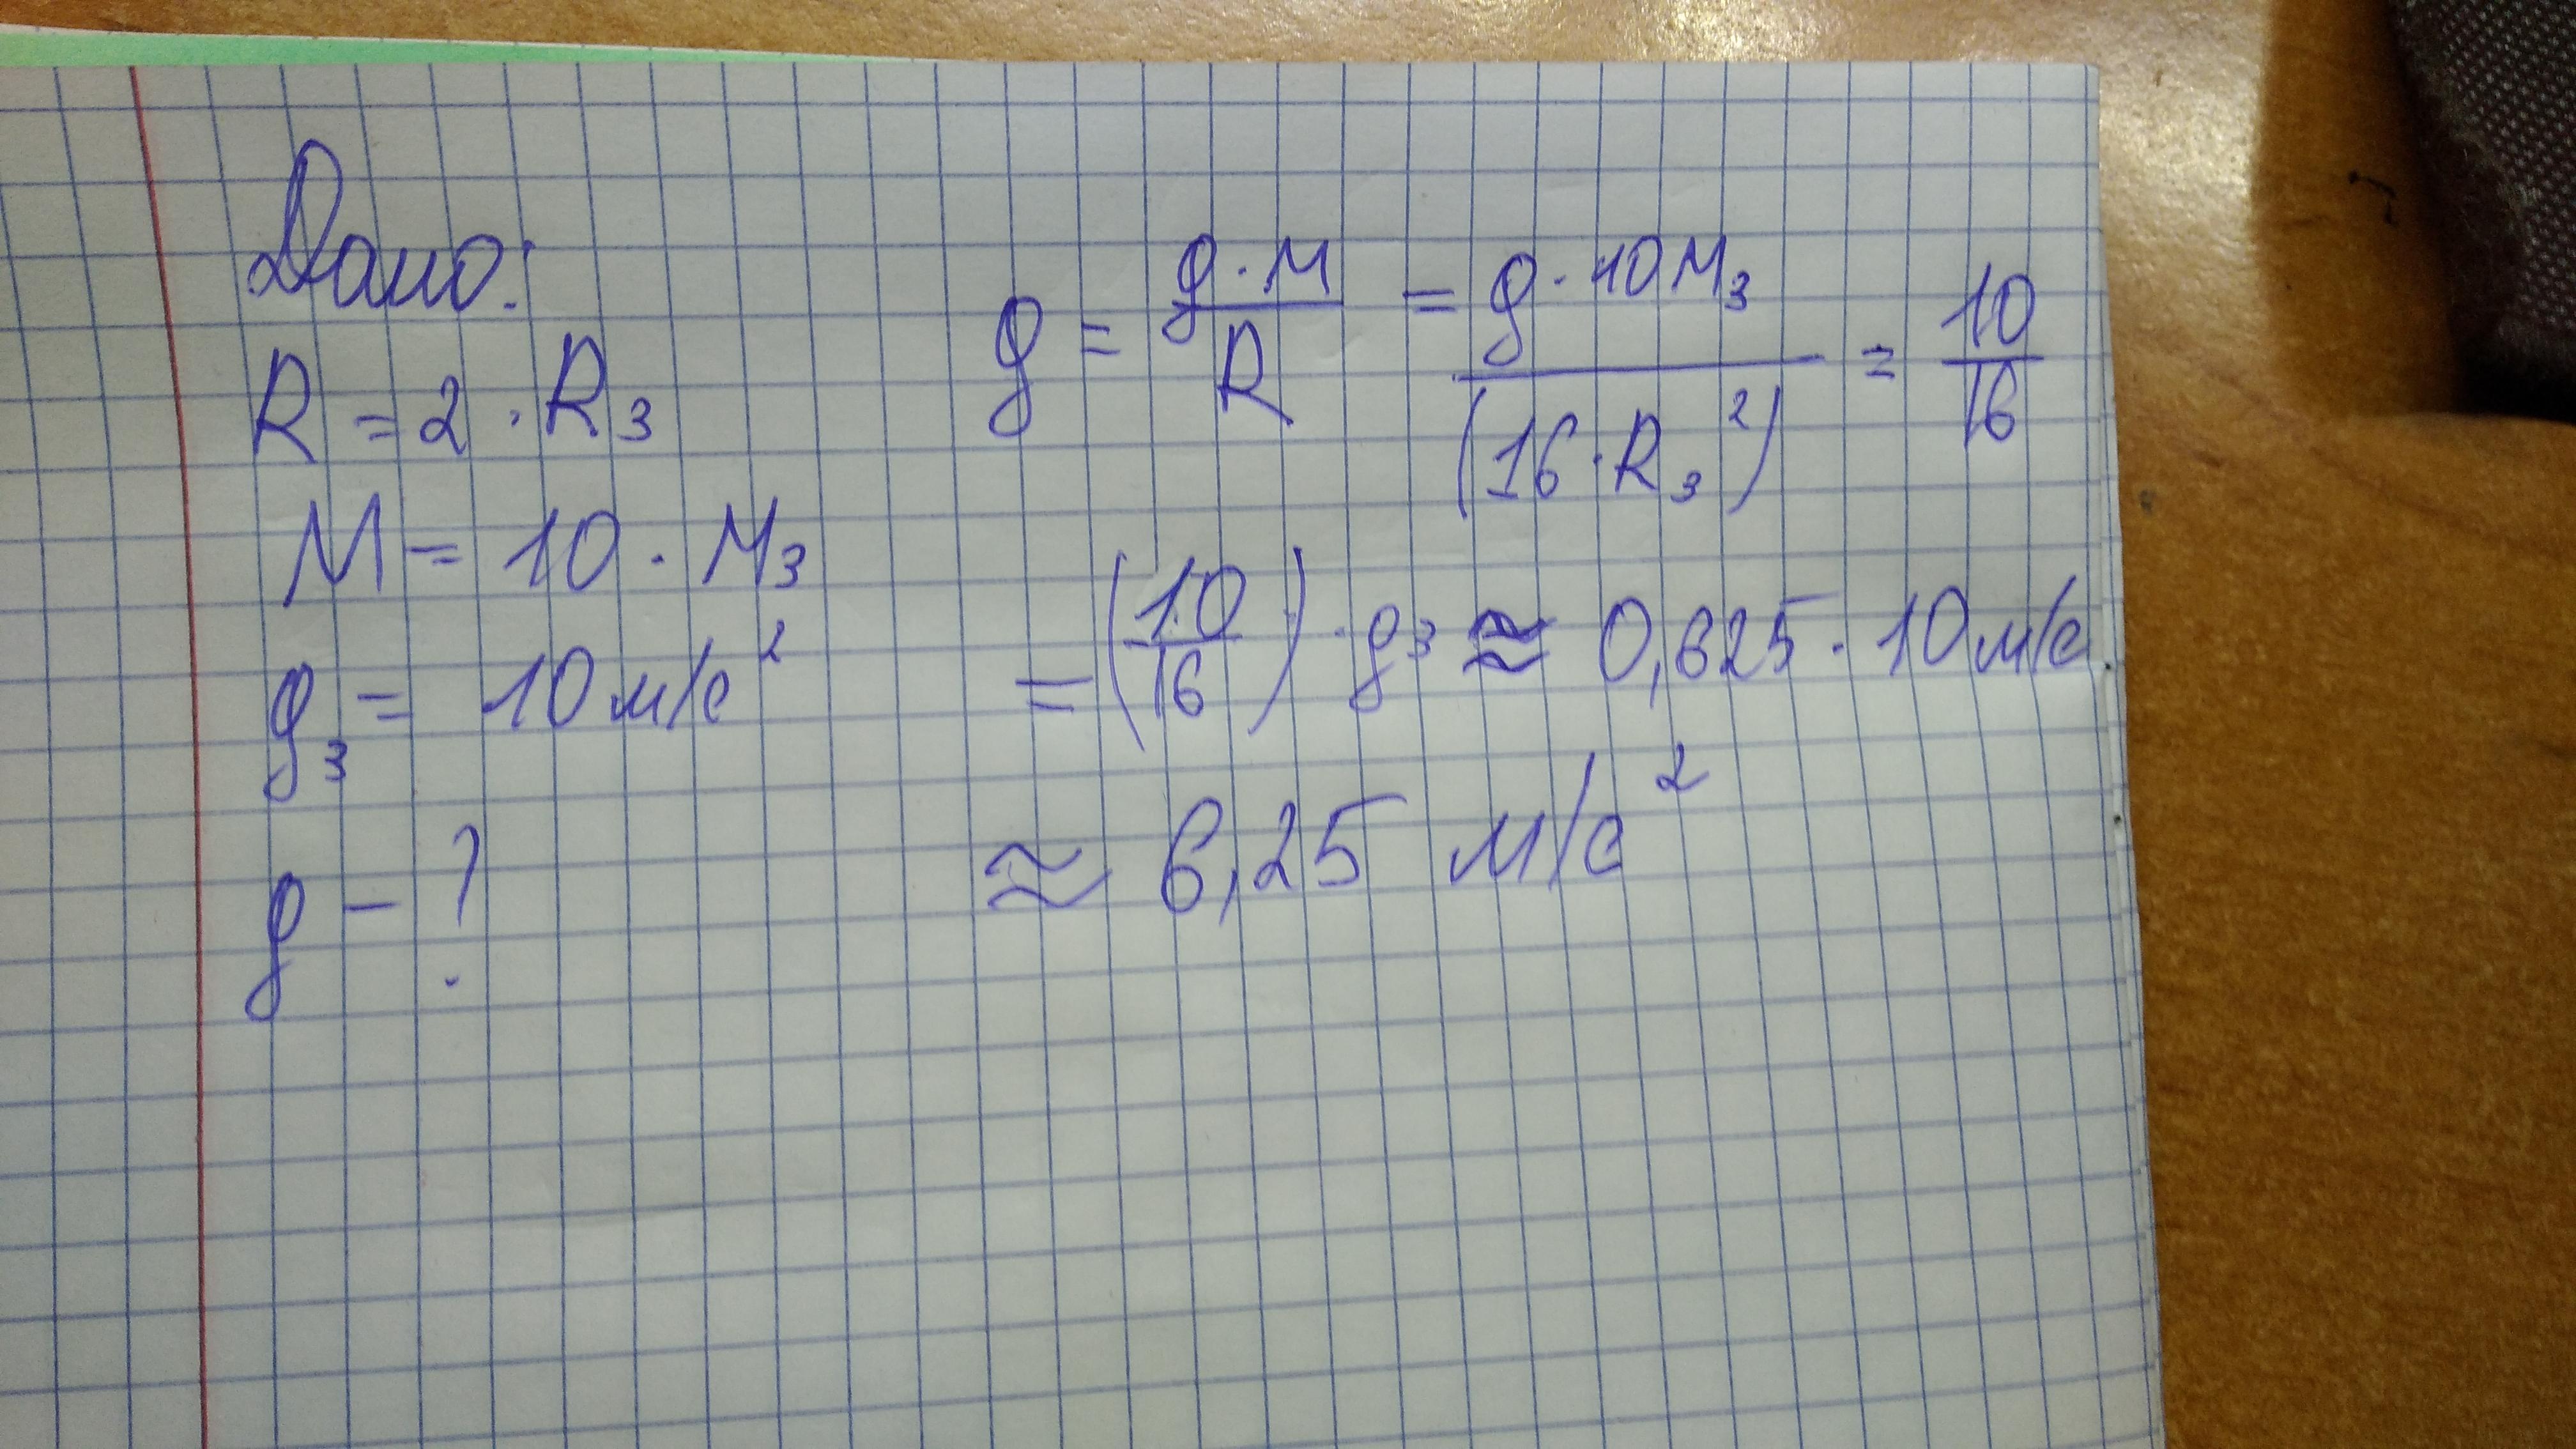 Дано:
R = 2 · R₃
M = 10 · M₃
g₃ = 10 м/с²
g – ?
g = g · M / R = g · 10 M₃ / (16 · R₃²) = 10/16
= (10/16) · g₃ ≈ 0,625 · 10 м/с
≈ 6,25 м/с²